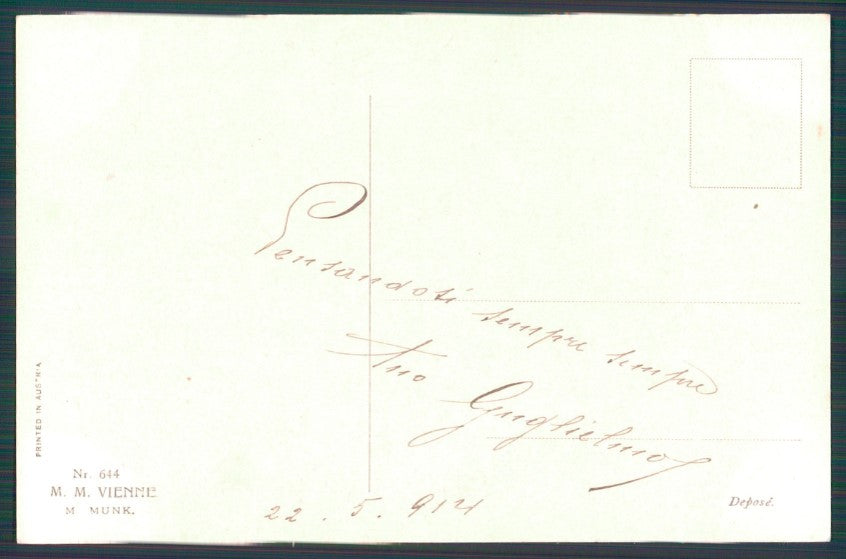 Pensandoti sempre sempre
tuo Guglielmo
22.5.914
PRINTED IN AUSTRIA
Nr. 644
M. M. VIENNE
M MUNK.
Deposé.